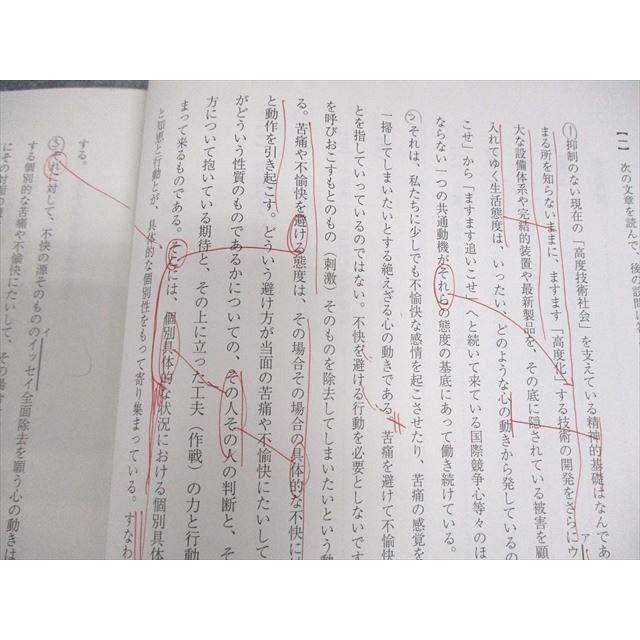 【二】 次の文章を読んで、後の設問に
① 抑制のない現在の「高度技術社会」を支えている精神的基礎はなんであ
まる所を知らないままに、ますます「高度化」する技術の開発をさらにウ
ア
大な設備体系や完結的装置や最新製品を、その底に隠されている被害を顧
入れてゆく生活態度は、いったい、どのような心の動きから発しているの
こせ」から「ますます追いこせ」へと続いて来ている国際競争心等々のほ
ならない一つの共通動機がそれらの態度の基底にあって働き続けている。
② それは、私たちに少しでも不愉快な感情を起こさせたり、苦痛の感覚を
一掃してしまいたいとする絶えざる心の動きである。苦痛を避けて不愉快
とを指していっているのではない。不快を避ける行動を必要としないです
を呼びおこすもとのもの（刺激）そのものを除去してしまいたいという動
る。苦痛や不愉快を避ける態度は、その場合その場合の具体的な不快に
と動作を引き起こす。どういう避け方が当面の苦痛や不愉快にたいして
がどういう性質のものであるかについての、その人その人の判断と、そ
方について抱いている期待と、その上に立った工夫（作戦）の力と行動
まって来るものである。そこには、個別具体的な状況における個別具体
と知恵と行動とが、具体的な個別性をもって寄り集まっている。すなわ
する。
③ それに対して、不快の源そのもののイッセイ全面除去を願う心の動きは
イ
する個別的な苦痛や不愉快にたいして、その場合